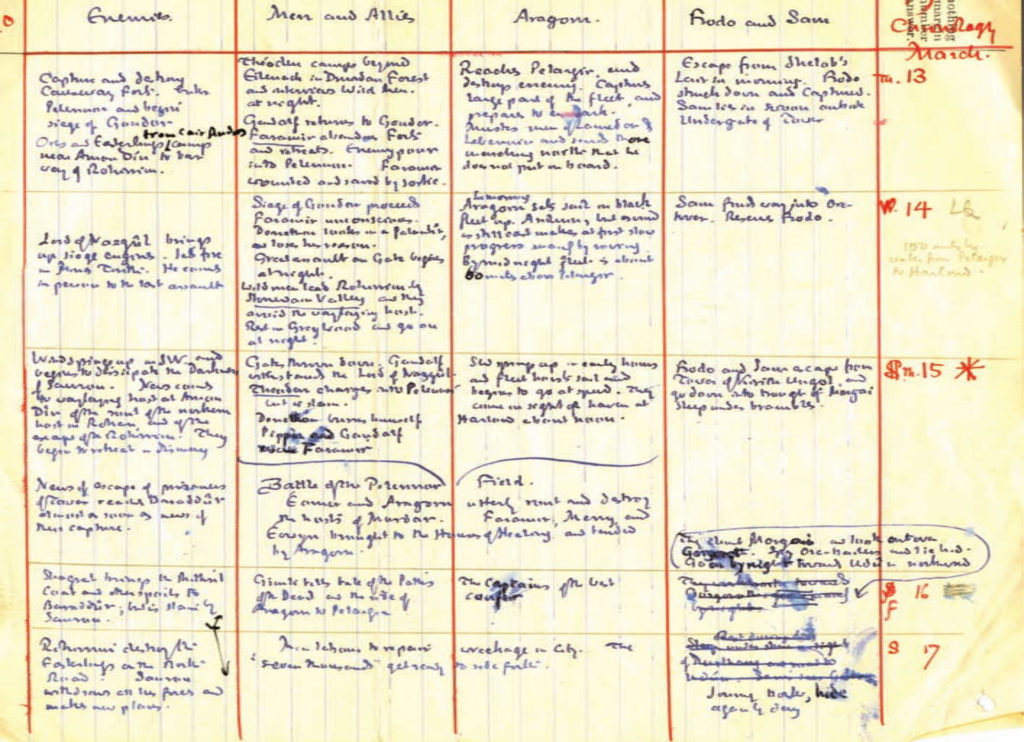 Enemies.
Men and Allies
Aragorn.
Frodo and Sam
Chronology
March.
Capture and destroy
Causeway Forts. Enter
Pelennor and begin
siege of Gondor
from Cair Andros
Orcs and Easterlings camp
near Amon Dîn to bar
way of Rohirrim.
Théoden camps beyond
Eilenach in Druadan Forest
and interviews Wild Men.
at night.
Gandalf returns to Gondor.
Faramir abandons Forts
and retreats. Enemy pour
into Pelennor. Faramir
wounded and saved by sortie.
Reaches Pelargir and
destroys enemy. Captures
large part of the fleet, and
prepares to embark.
Musters men of Lamedon &
Lebennin and sends those
marching north that he
does not put on board.
Escape from Shelob's
Lair in morning. Frodo
struck down and Captured.
Sam lies in swoon outside
Undergate of Tower
Tu. 13
Lord of Nazgûl brings
up siege engines. Sets fire
in Minas Tirith. He comes
in person to the last assault
Siege of Gondor proceeds
Faramir unconscious.
Denethor looks in a Palantír,
and loses his reason.
Great assault on Gate begins
at night.
Wild men lead Rohirrim by
Stonewain Valley and they
avoid the waylaying host.
Rest in Grey Wood and go on
at night.
In morning
Aragorn sets sail on black
fleet up Anduin, but wind
is still and makes at first slow
progress mainly by rowing.
By midnight fleet is about
60 miles above Pelargir.
Sam finds way into Orc-
tower. Rescues Frodo.
W. 14
150 miles by
water from Pelargir
to Harlond.
Wind springs up in S.W. and
begins to dissipate the Darkness
of Sauron. News comes
to waylaying host at Amon
Dîn of the ruin of the northern
host in Rohan, and of the
escape of the Rohirrim. They
begin to retreat in dismay
Gate thrown down. Gandalf
withstands the Lord of Nazgûl
Théoden charges into Pelennor
but is slain.
Denethor burns himself
Pippin and Gandalf
rescue Faramir
SW springs up in early hours
and fleet hoists sail and
begins to go at speed. They
come in sight of haven at
Harlond about noon.
Frodo and Sam escape from
Tower of Kirith Ungol, and
go down into trough of Morgai
Sleep under brambles.
Th. 15 *
News of escape of prisoners
of Tower reaches Baraddûr
almost as soon as news of
their capture.
Battle of the Pelennor Field.
Eomer and Aragorn utterly rout and destroy
the hosts of Mordor. Faramir, Merry, and
Eowyn brought to the Houses of Healing, and tended
by Aragorn.
They climb Morgai and look out over
Gorgoroth. Spy Orc-trackers and lie hid.
Go on by night toward Udûn northward
Shagrat brings the Mithril
Coat and other spoils to
Baraddûr; but is slain by
Sauron.
Gimli tells tale of the Paths
of the Dead and the ride of
Aragorn to Pelargir
The Captains of the West
confer
F 16
Rohirrim destroy the
Easterlings on the North
Road. Sauron
withdraws all his forces and
makes new plans.
Men labour to repair wreckage in City. The
'seven thousands' get ready to ride forth.
Journey north, hide
again by day
S 17